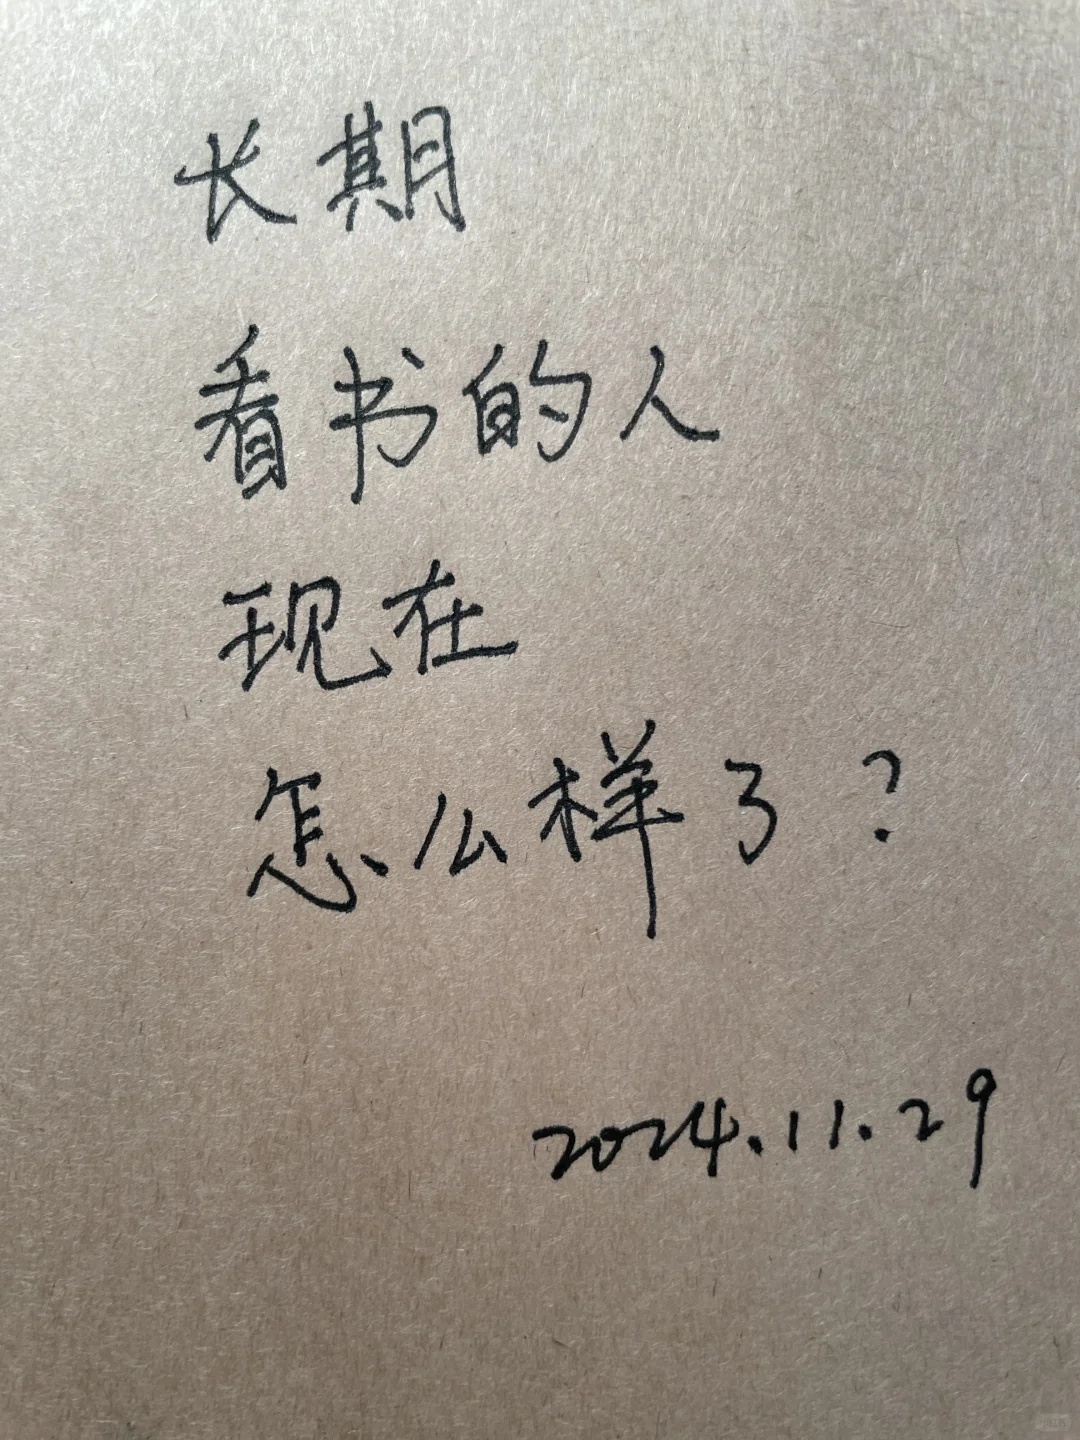 长期
看书的人
现在
怎么样了？
2024.11.29